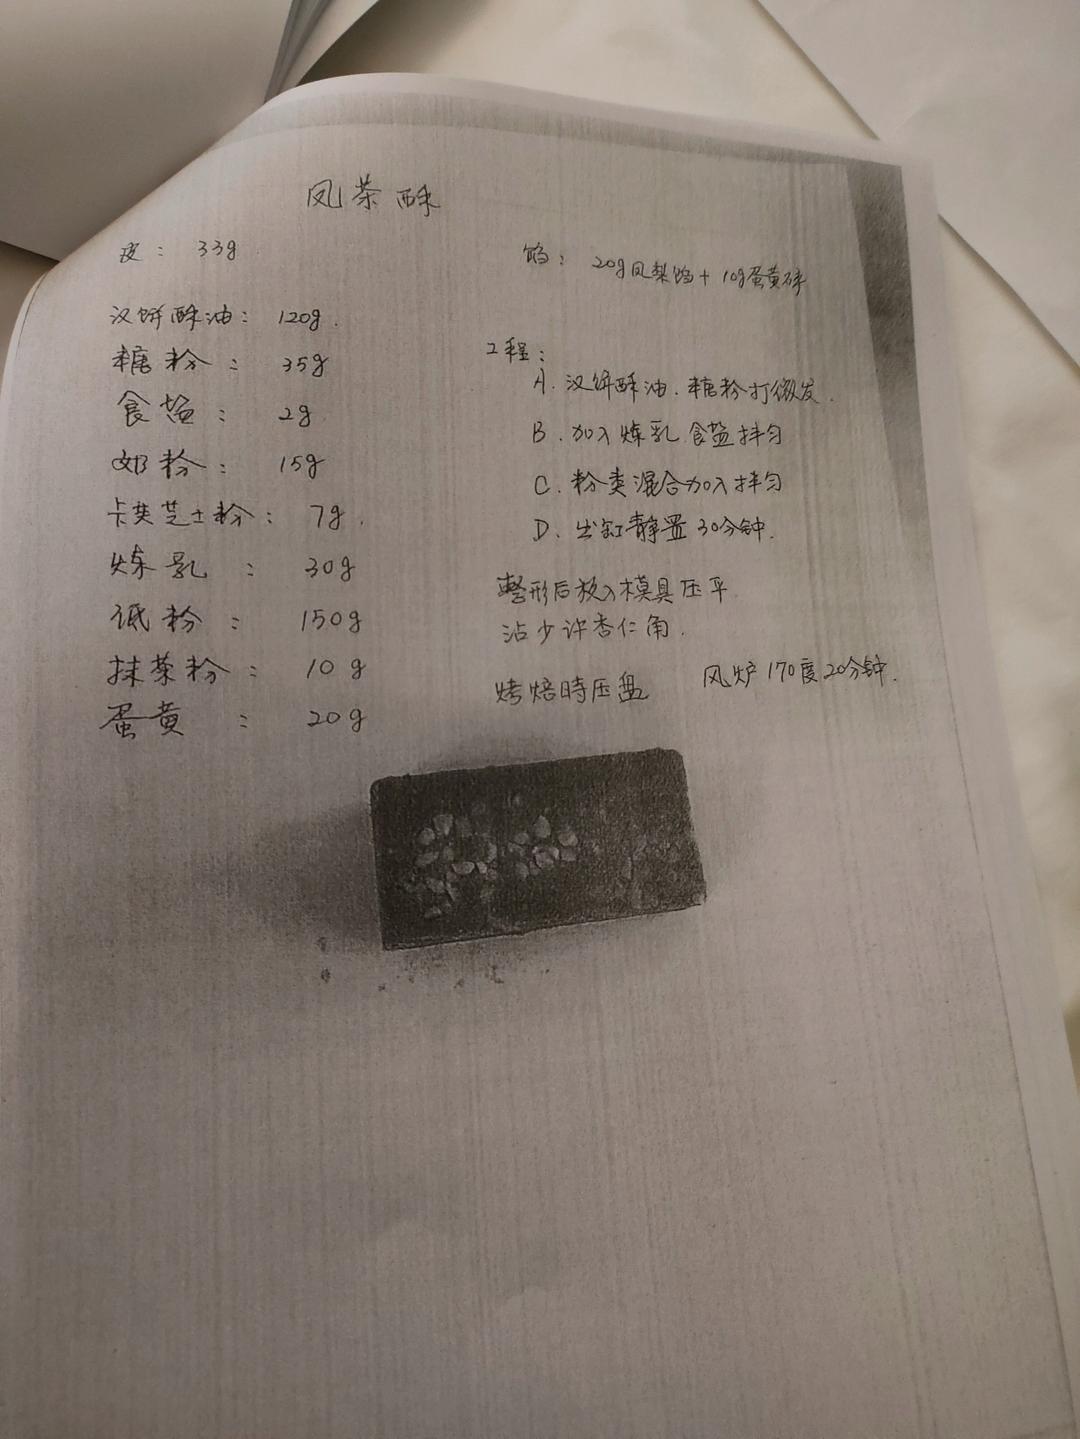 凤茶酥
皮： 33g
汉饼酥油： 120g.
糖粉： 35g
食盐： 2g
奶粉： 15g
卡夫芝士粉： 7g.
炼乳： 30g
低粉： 150g
抹茶粉： 10g
蛋黄： 20g
馅： 20g凤梨馅+10g蛋黄碎
工程：
A. 汉饼酥油.糖粉打微发.
B. 加入炼乳.食盐拌匀
C. 粉类混合加入拌匀
D. 出缸静置30分钟.
整形后放入模具压平.
沾少许杏仁角.
烤焙時压盘 风炉170度20分钟.